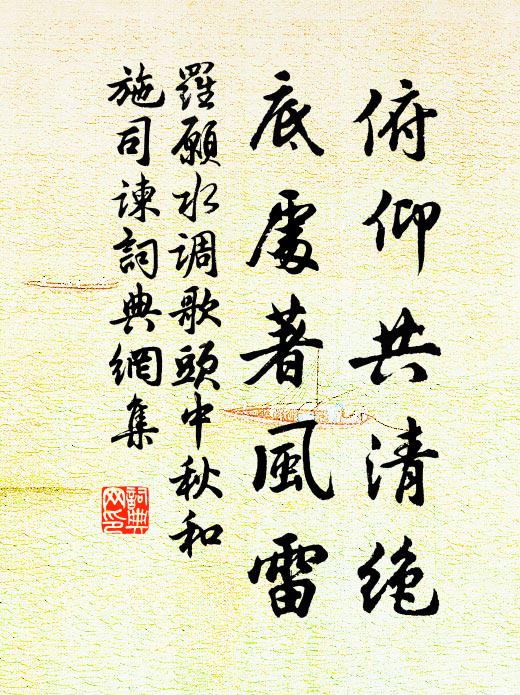 俯仰共清絶
底處著風雷
羅願水调歌頭中秋和
施司諫詞典網集
詞典
网印